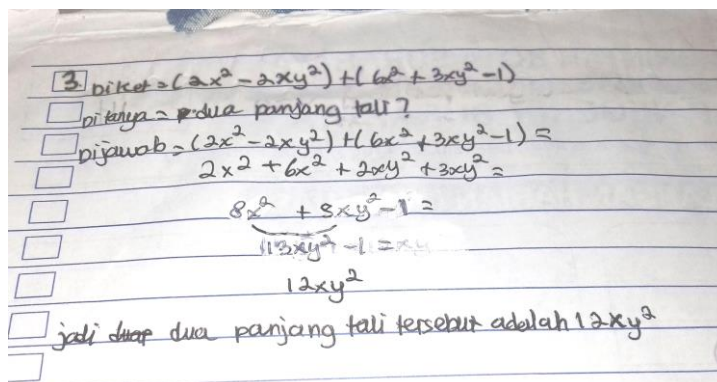 3. Diket = (2x² - 2xy²) + (6x² + 3xy² - 1)
Ditanya = dua panjang tali?
Dijawab = (2x² - 2xy²) + (6x² + 3xy² - 1) =
2x² + 6x² + 2xy² + 3xy² =
8x² + 5xy² - 1 =
13xy² - 1 = xy
12xy²
jadi dua panjang tali tersebut adalah 12xy²